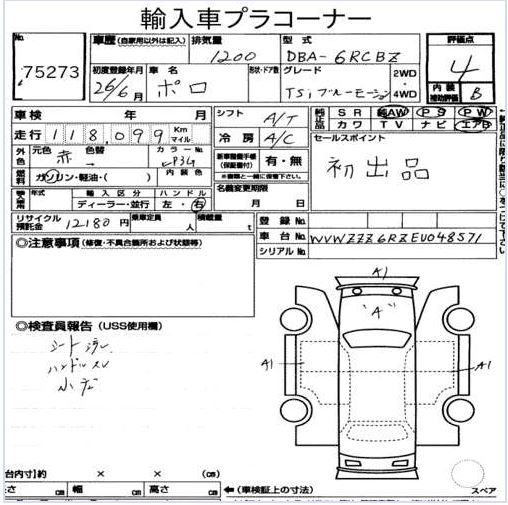 輸入車プラコーナー
No. 75273
車歴 (自家用以外は記入) 排気量 1200 型式 DBA-6RCBZ 評価点 4
初度登録年月 26/6月 車名 ポロ 形状・ドア数 グレード TSi ブルーモーション 2WD・4WD 内装補助評価 B
車検 年 月 シフト A/T 純正品 SR 純AW PS PW
走行 118,099 Km マイル 冷房 A/C カワ TV ナビ エアB
外色 元色 赤 色替 カラーNo. LP3G 新車整備手帳(保証書付) 有・無 セールスポイント
※書類と一緒に保管下さい。 初出品
燃料 ガソリン・軽油・( ) 内装色
名義変更期限 月 日
輸入車 年式 輸入区分 ディーラー・並行 ハンドル 左・右
リサイクル預託金 12180円 乗車定員 人 積載量 t 登録No.
車台No. WVWZZZ6RZEU048571
シリアルNo.
◎注意事項 (修復・不具合箇所および状態等)
A1
"A"
◎検査員報告 (USS使用欄)
シート汚レ
ハンドルスレ
小キズ
A1 A1
台内寸)約 × × (cm)
長さ cm 幅 cm 高さ cm ←(車検証上の寸法) スペア